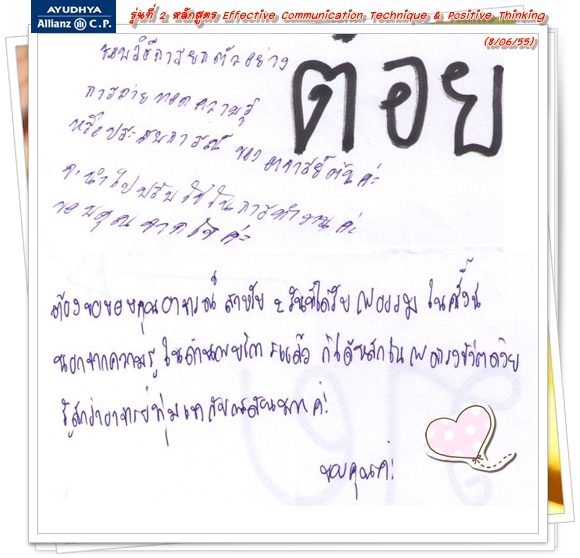 AYUDHYA
Allianz C.P.
รุ่นที่ 2 หลักสูตร Effective Communication Technique & Positive Thinking
(8/06/55)
ชอบวิธีการยกตัวอย่าง
การถ่ายทอดความรู้
หรือประสบการณ์ ของ อาจารย์ค่ะ
จะนำไปปรับใช้ในการทำงานค่ะ
ขอบคุณจากใจค่ะ
ต้อย
ต้องขอขอบคุณอาจารย์ ที่ได้รับ ในครั้งนี้
นอกจากความรู้ ในด้าน แล้ว ก็ได้ ชีวิตด้วย
รู้สึกว่าอาจารย์ทุ่มเท ค่ะ
ขอบคุณค่ะ